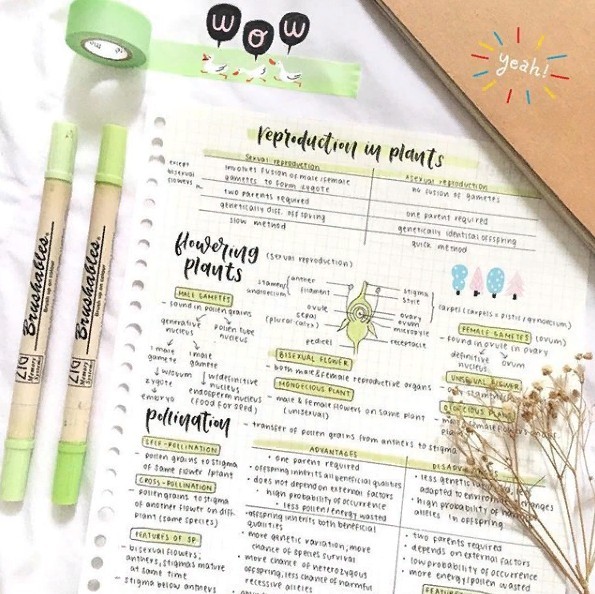 wow
yeah!
Brushables.
Brush up on colour
DIZ
Memory System
Brushables.
Brush up on colour
DIZ
Memory System
reproduction in plants
sexual reproduction
asexual reproduction
except bisexual flowers
involves fusion of male & female gametes to form zygote
no fusion of gametes
two parents required
one parent required
genetically diff. offspring
genetically identical offspring
slow method
quick method
flowering plants (sexual reproduction)
stamen/androecium
anther
filament
ovule
sepal
(plural calyx)
pedicel
stigma
style
ovary
ovum
micropyle
receptacle
carpel (carpels = pistil / gynoecium)
MALE GAMETES
- found in pollen grains
generative nucleus
pollen tube nucleus
1 male gamete
1 male gamete
w/ovum
w/definitive nucleus
zygote
endosperm nucleus
embryo
(food for seed)
FEMALE GAMETES (ovum)
- found in ovule in ovary
definitive nucleus
ovum
BISEXUAL FLOWER
- both male & female reproductive organs
MONOECIOUS PLANT
- male & female flowers on same plant
(unisexual)
UNISEXUAL FLOWER
DIOECIOUS PLANT
pollination
- transfer of pollen grains from anthers to stigma
SELF-POLLINATION
- pollen grains to stigma
of same flower/plant
CROSS-POLLINATION
- pollen grains to stigma
of another flower on diff.
plant (same species)
FEATURES OF SP:
- bisexual flowers;
anthers, stigmas mature
at same time
- stigma below anthers
ADVANTAGES
• one parent required
• offspring inherits all beneficial qualities
• does not depend on external factors
• high probability of occurrence
• less pollen/energy wasted
• offspring inherits both beneficial
qualities
• more genetic variation; more
chance of species survival
• more chance of heterozygous
offspring, less chance of harmful
recessive alleles
• less genetic
adapted to changes
• high probability of
in offspring
• two parents required
• depends on external factors
• low probability of occurrence
• more energy/pollen wasted